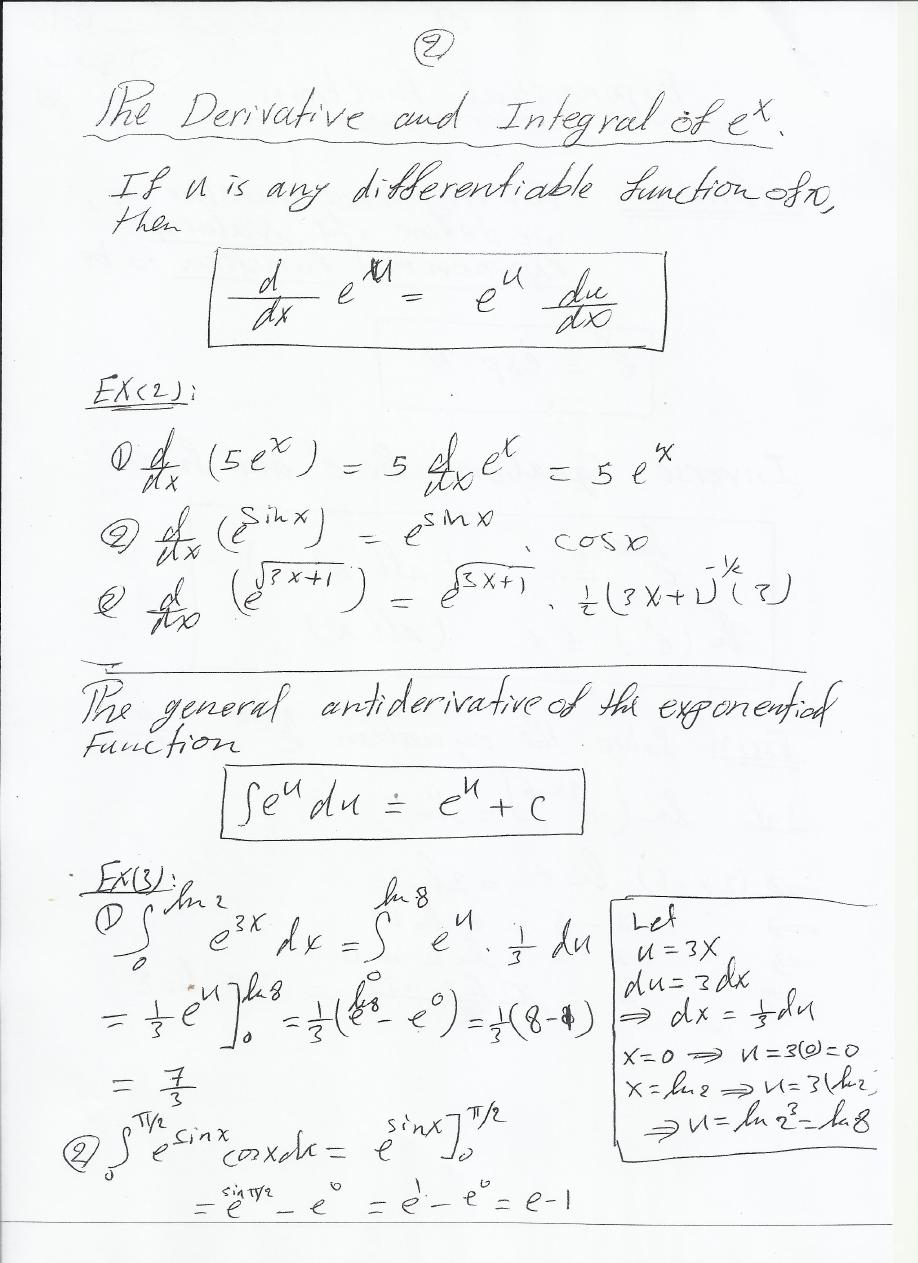 ②
The Derivative and Integral of eˣ.
If u is any differentiable function of x,
then
d/dx eᵘ = eᵘ du/dx
EX(2):
① d/dx (5eˣ) = 5 d/dx eˣ = 5 eˣ
② d/dx (e^(sin x)) = e^(sin x) . cos x
② d/dx (e^√(3x+1)) = e^√(3x+1) . 1/2 (3x+1)^(-1/2) (3)
The general antiderivative of the exponential
Function
∫eᵘ du = eᵘ + c
EX(3):
① ∫₀^(ln 2) e^(3x) dx = ∫₀^(ln 8) eᵘ . 1/3 du
= 1/3 eᵘ]₀^(ln 8) = 1/3 (e^(ln 8) - e⁰) = 1/3 (8-1)
= 7/3
Let
u = 3x
du = 3 dx
⇒ dx = 1/3 du
x=0 ⇒ u=3(0)=0
x=ln 2 ⇒ u=3(ln 2)
⇒ u = ln 2³ = ln 8
② ∫₀^(π/2) e^(sin x) cos x dx = e^(sin x)]₀^(π/2)
= e^(sin π/2) - e⁰ = e¹ - e⁰ = e-1